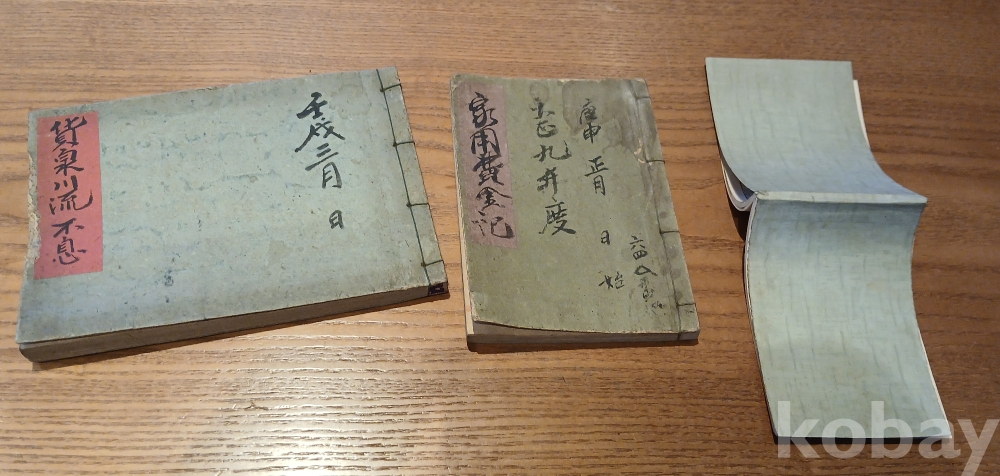 壬戌三月 日
貨泉川流不息
庚申 正月 日 始
大正九年度
家用費金記
kobay